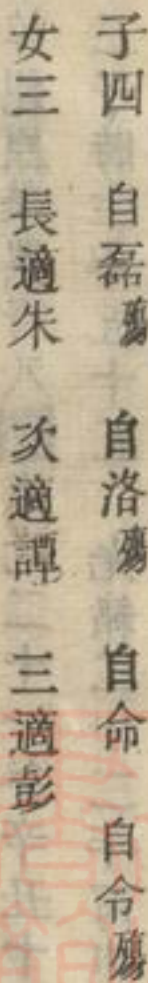 子四 自磊殤 自洛殤 自命 自令殤
女三 長適朱 次適譚 三適彭